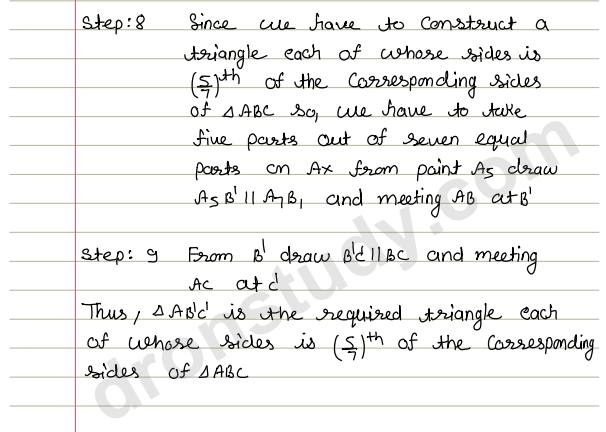 Step:8 Since we have to construct a
triangle each of whose sides is
(5/7)th of the corresponding sides
of △ABC so, we have to take
five parts out of seven equal
parts on AX from point A5 draw
A5B' || A7B, and meeting AB at B'
Step: 9 From B' draw B'C' || BC and meeting
AC at C'
Thus, △AB'C' is the required triangle each
of whose sides is (5/7)th of the corresponding
sides of △ABC
dronstudy.com